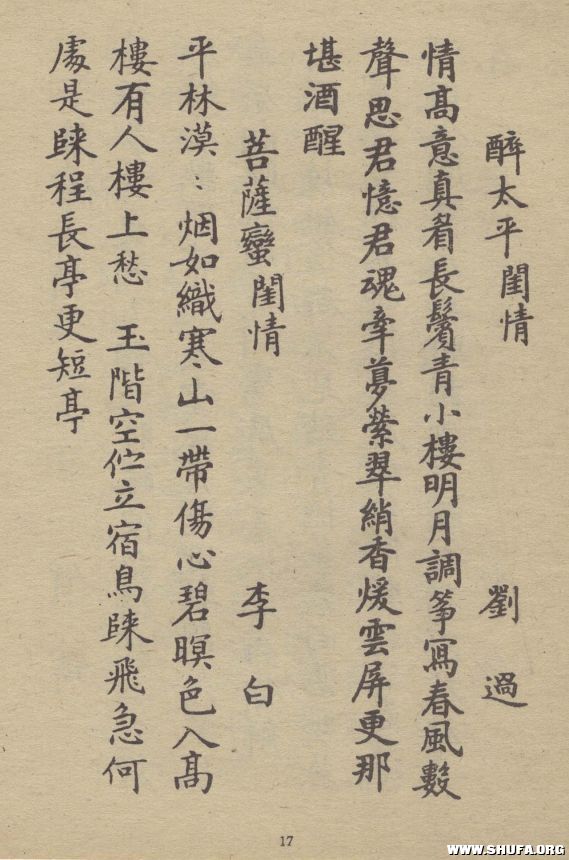 醉太平閨情 劉過
情高意真眉長鬢青小樓明月調箏寫春風數
聲思君憶君魂牽夢縈翠綃香煖雲屏更那
堪酒醒
菩薩蠻閨情 李白
平林漠〻烟如織寒山一帶傷心碧暝色入高
樓有人樓上愁 玉階空佇立宿鳥歸飛急何
處是歸程長亭更短亭
17
WWW.SHUFA.ORG